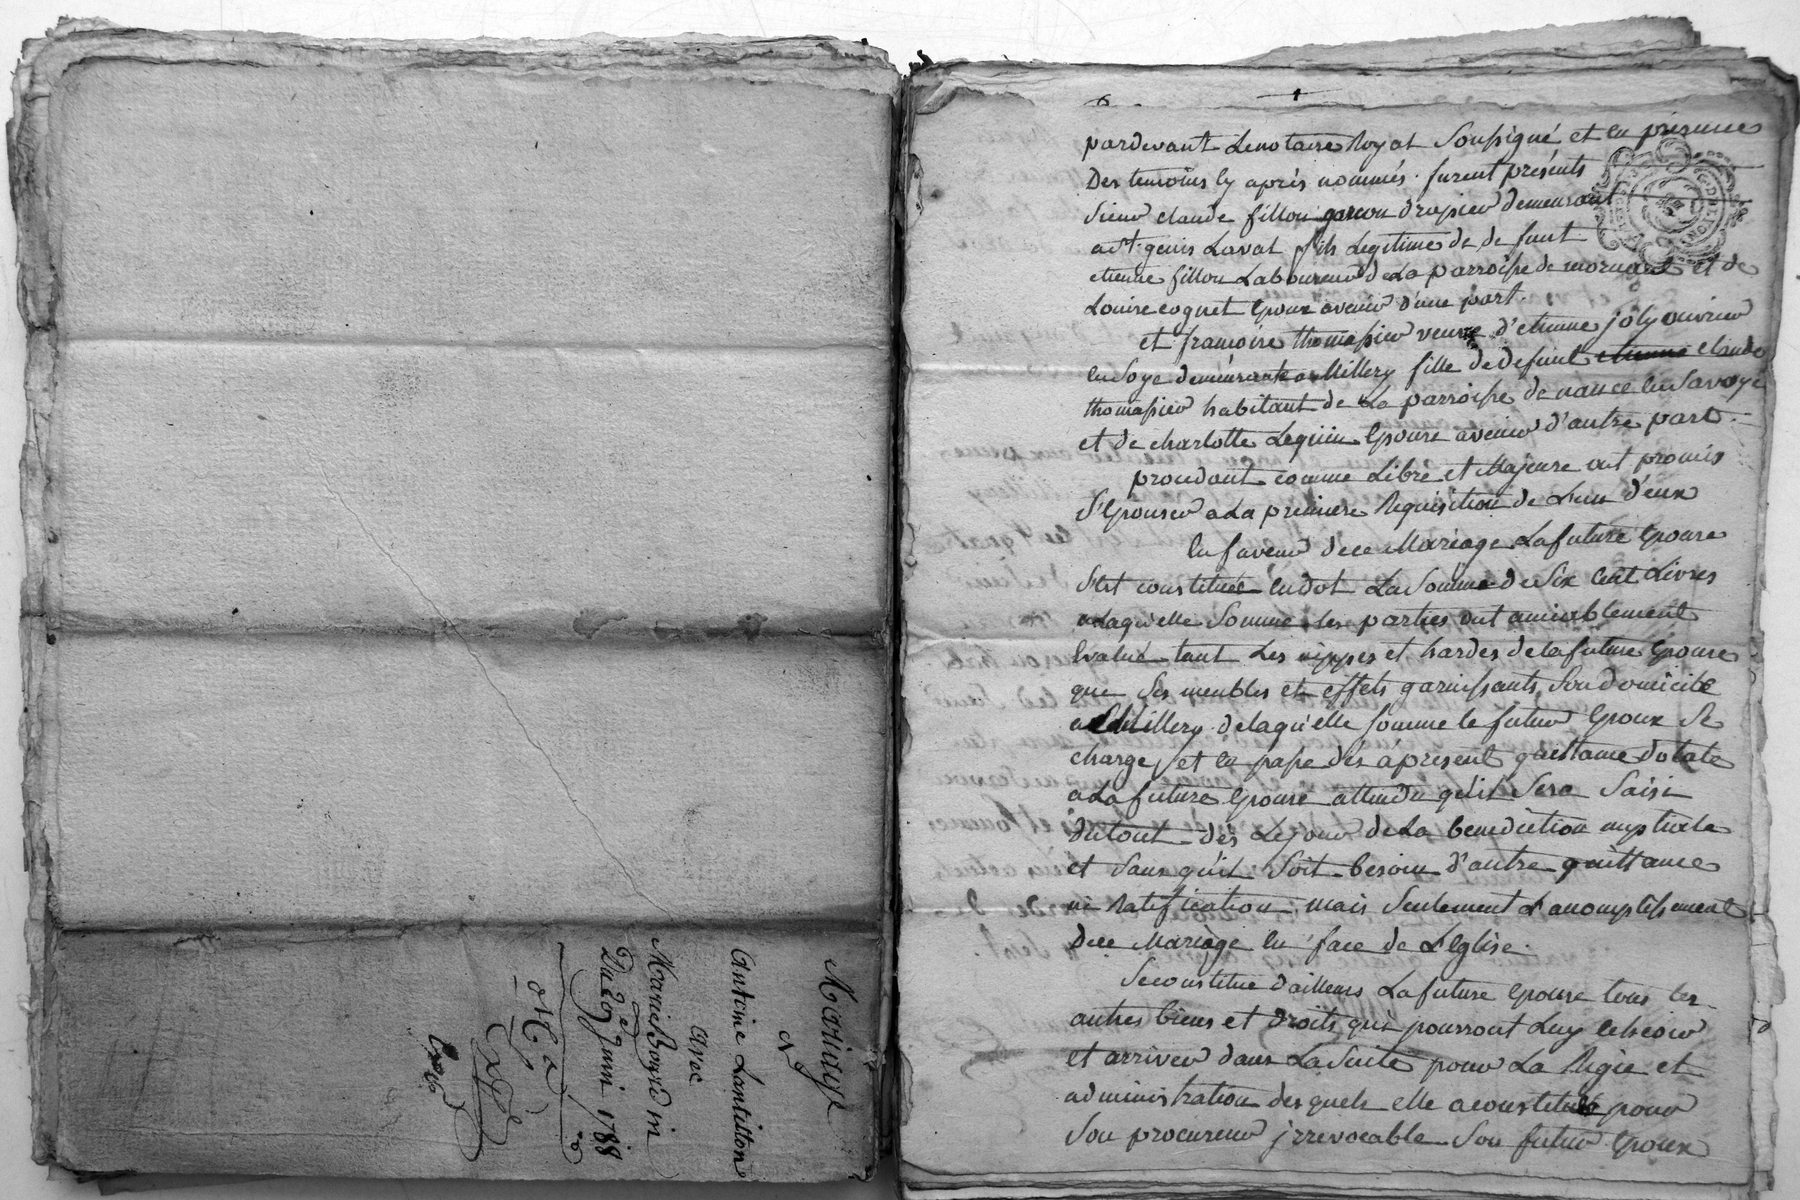 Mariage
Antoine Lantillon
avec
Marie Boyrivin
Du 29 Juin 1788
Exp.
pardevant Lenotaire Royal Soussigné et en presence
Des temoins cy aprés nommés. furent presénts
Sieur claude fillon garcon drapier demeurant
a St. genis Laval fils Legitime de defunt
etienne fillon Laboureur de La parroisse de mornant et de
Louise coquet Epoux avenir d'une part.
et francoise thomassier veuve d'etienne joly ouvrier
en Soye demeurante a Millery fille dedefunt claude
thomassier habitant de La parroisse de nance en Savoye
et de charlotte Lequin Epouse avenir d'autre part.
procedant comme Libre et Majeure ont promis
S'Epouser a La premiere Requisition de L'un d'eux
En faveur dece Mariage La future Epouse
S'est constituée en dot La Somme de Six Cent Livres
alaquelle Somme les parties ont amiablement
Evalué tant Les nippes et hardes de la future Epouse
que Ses meubles et effets garnissants Son domicile
a Millery delaqu'elle somme le futur Epoux Se
charge, et en passe dés àpresent quittance dotale
a La future Epouse attendu qu'il Sera Saisi
dutout dés Lejour de La benediction nuptiale
et Sans qu'il Soit besoin d'autre quittance
ni Ratification mais Seulement L'accomplissement
dece Mariage en face de L'Eglise.
Seconstitue d'ailleurs La future Epouse tous les
autres biens et droits qui pourront Luy echeoir
et arriver dans La Suite pour La Régie et
administration desquels elle aconstitué pour
Son procureur jrrevocable Son futur Epoux